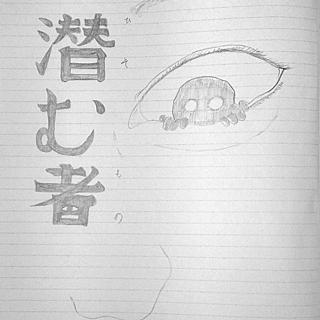 潜む者
ひそむもの